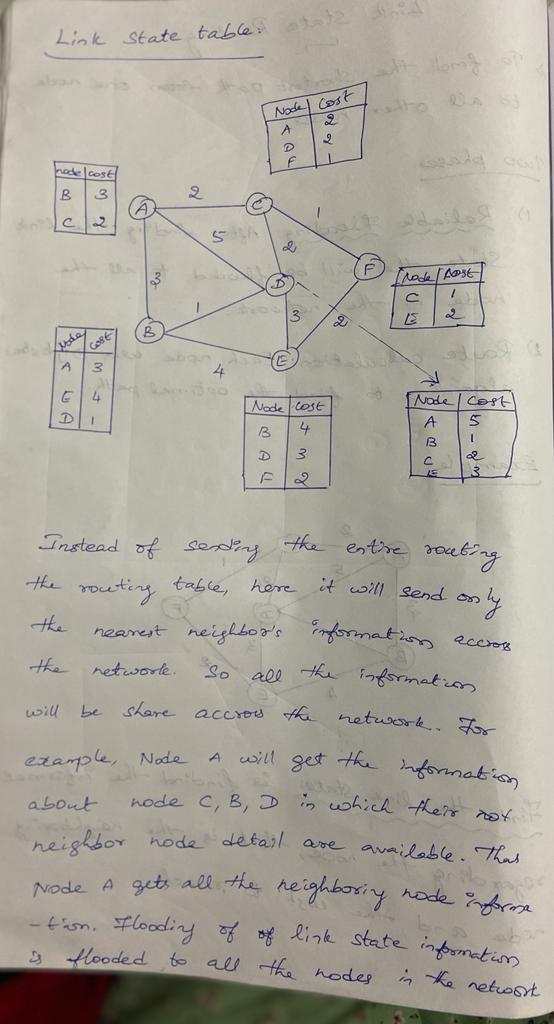 Link State table:
Node Cost
A 2
D 2
F 1
node cost
B 3
C 2
A 2 C
5 2 1
F
D
3 1 3 2
B
4 E
Node Cost
C 1
E 2
Node cost
A 3
E 4
D 1
Node cost
B 4
D 3
F 2
Node Cost
A 5
B 1
C 2
E 3
Instead of sending the entire routing
the routing table, here it will send only
the nearest neighbor's information accross
the network. So all the information
will be share accross the network. For
example, Node A will get the information
about node C, B, D in which their
neighbor node detail are available. Thus
Node A gets all the neighboring node informa
-tion. Flooding of link state information
is flooded to all the nodes in the network